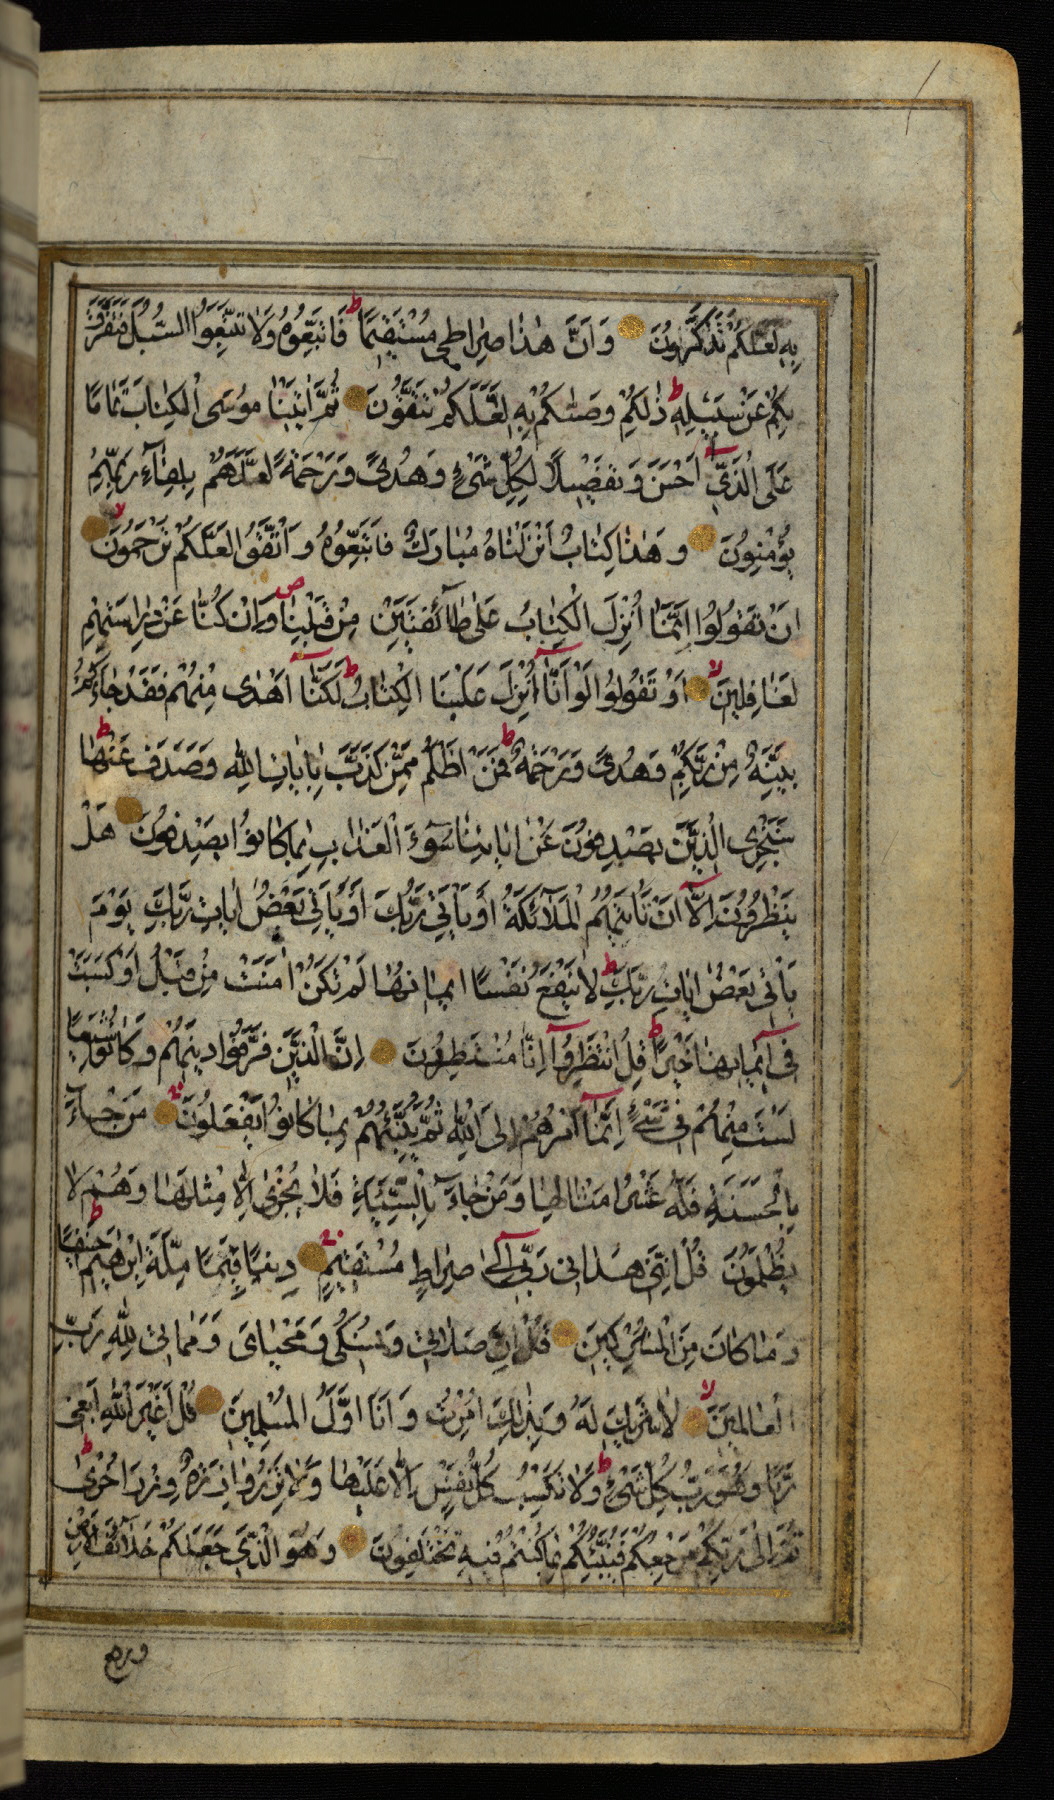 بِهِ لَعَلَّكُمْ تَذَكَّرُونَ وَاَنَّ هٰذَا صِرَاطِى مُسْتَقِيمًا ط فَاتَّبِعُوهُ وَلَا تَتَّبِعُوا السُّبُلَ فَتَفَرَّقَ
بِكُمْ عَنْ سَبِيلِهِ ط ذٰلِكُمْ وَصّٰىكُمْ بِهِ لَعَلَّكُمْ تَتَّقُونَ ثُمَّ اٰتَيْنَا مُوسَى الْكِتَابَ تَمَامًا
عَلَى الَّذِىٓ اَحْسَنَ وَتَفْصِيلًا لِكُلِّ شَىْءٍ وَهُدًى وَرَحْمَةً لَعَلَّهُمْ بِلِقَآءِ رَبِّهِمْ
يُؤْمِنُونَ وَهٰذَا كِتَابٌ اَنْزَلْنَاهُ مُبَارَكٌ فَاتَّبِعُوهُ وَاتَّقُوا لَعَلَّكُمْ تُرْحَمُونَ لا
اَنْ تَقُولُوا اِنَّمَا اُنْزِلَ الْكِتَابُ عَلٰى طَآئِفَتَيْنِ مِنْ قَبْلِنَا ص وَاِنْ كُنَّا عَنْ دِرَاسَتِهِمْ
لَغَافِلِينَ لا اَوْ تَقُولُوا لَوْ اَنَّآ اُنْزِلَ عَلَيْنَا الْكِتَابُ لَكُنَّآ اَهْدٰى مِنْهُمْ ط فَقَدْ جَآءَكُمْ
بَيِّنَةٌ مِنْ رَبِّكُمْ وَهُدًى وَرَحْمَةٌ ط فَمَنْ اَظْلَمُ مِمَّنْ كَذَّبَ بِاٰيَاتِ اللهِ وَصَدَفَ عَنْهَا ط
سَنَجْزِى الَّذِينَ يَصْدِفُونَ عَنْ اٰيَاتِنَا سُوٓءَ الْعَذَابِ بِمَا كَانُوا يَصْدِفُونَ هَلْ
يَنْظُرُونَ اِلَّآ اَنْ تَأْتِيَهُمُ الْمَلَآئِكَةُ اَوْ يَأْتِىَ رَبُّكَ اَوْ يَأْتِىَ بَعْضُ اٰيَاتِ رَبِّكَ يَوْمَ
يَأْتِى بَعْضُ اٰيَاتِ رَبِّكَ ط لَا يَنْفَعُ نَفْسًا اِيمَانُهَا لَمْ تَكُنْ اٰمَنَتْ مِنْ قَبْلُ اَوْ كَسَبَتْ
فِىٓ اِيمَانِهَا خَيْرًا ط قُلِ انْتَظِرُوٓا اِنَّا مُنْتَظِرُونَ اِنَّ الَّذِينَ فَرَّقُوا دِينَهُمْ وَكَانُوا شِيَعًا
لَسْتَ مِنْهُمْ فِى شَىْءٍ اِنَّمَآ اَمْرُهُمْ اِلَى اللهِ ثُمَّ يُنَبِّئُهُمْ بِمَا كَانُوا يَفْعَلُونَ مَنْ جَآءَ
بِالْحَسَنَةِ فَلَهُ عَشْرُ اَمْثَالِهَا وَمَنْ جَآءَ بِالسَّيِّئَةِ فَلَا يُجْزٰى اِلَّا مِثْلَهَا وَهُمْ لَا
يُظْلَمُونَ قُلْ اِنَّنِى هَدَانِى رَبِّىٓ اِلٰى صِرَاطٍ مُسْتَقِيمٍ دِينًا قِيَمًا مِلَّةَ اِبْرٰهِيمَ حَنِيفًا ط
وَمَا كَانَ مِنَ الْمُشْرِكِينَ قُلْ اِنَّ صَلَاتِى وَنُسُكِى وَمَحْيَاىَ وَمَمَاتِى لِلهِ رَبِّ
الْعَالَمِينَ لا لَا شَرِيكَ لَهُ وَبِذٰلِكَ اُمِرْتُ وَاَنَا اَوَّلُ الْمُسْلِمِينَ قُلْ اَغَيْرَ اللهِ اَبْغِى
رَبًّا وَهُوَ رَبُّ كُلِّ شَىْءٍ ط وَلَا تَكْسِبُ كُلُّ نَفْسٍ اِلَّا عَلَيْهَا وَلَا تَزِرُ وَازِرَةٌ وِزْرَ اُخْرٰى ط
ثُمَّ اِلٰى رَبِّكُمْ مَرْجِعُكُمْ فَيُنَبِّئُكُمْ بِمَا كُنْتُمْ فِيهِ تَخْتَلِفُونَ وَهُوَ الَّذِى جَعَلَكُمْ خَلَآئِفَ الْاَرْضِ
ورفع